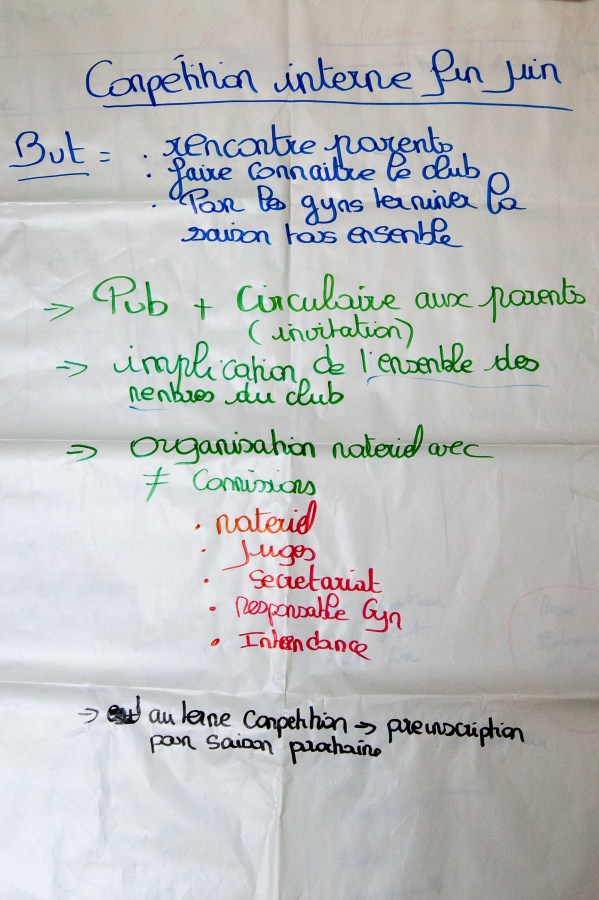 Conpétition interne fin juin
But = . rencontre parents
. faire connaitre le club
. Pour les gyns terminer la
saison tous ensemble
=> Pub + Circulaire aux parents
(invitation)
=> implication de l'ensemble des
nenbres du club
=> organisation nateriel avec
≠ Connissions
. nateriel
. Juges
. Secretariat
. Responsable Gyn
. Intendance
=> au terne Conpetition -> preinscription
pour saison prochaine